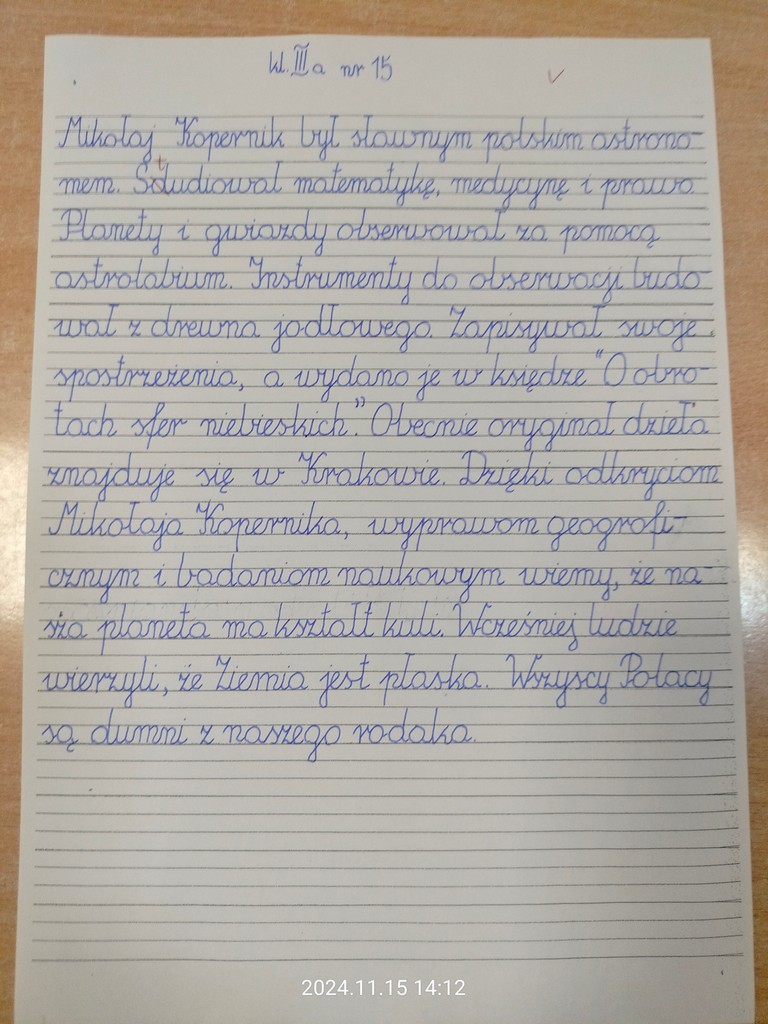 kl. III a nr 15
Mikołaj Kopernik był sławnym polskim astrono-
mem. Studiował matematykę, medycynę i prawo
Planety i gwiazdy obserwował za pomocą
astrolabium. Instrumenty do obserwacji budo
wał z drewna jodłowego. Zapisywał swoje
spostrzeżenia, a wydano je w księdze "O obro-
tach sfer niebieskich". Obecnie oryginał dzieła
znajduje się w Krakowie. Dzięki odkryciom
Mikołaja Kopernika, wyprawom geografi-
cznym i badaniom naukowym wiemy, że na-
sza planeta ma kształt kuli. Wcześniej ludzie
wierzyli, że Ziemia jest płaska. Wszyscy Polacy
są dumni z naszego rodaka.
2024.11.15 14:12